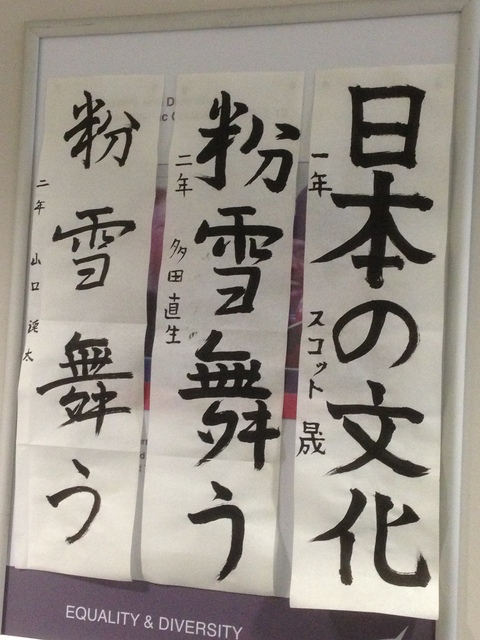 日本の文化
一年 スコット 晟
粉雪舞う
二年 多田直生
粉雪舞う
二年 山口 瑛太
EQUALITY & DIVERSITY